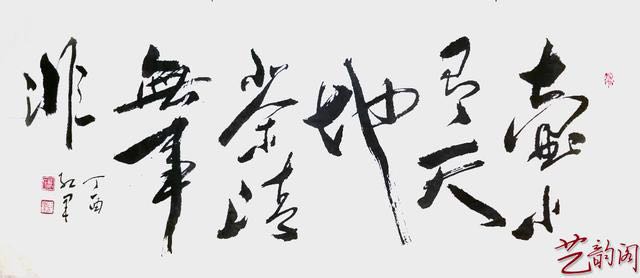 壺小
有天
地
茶清
無是
非
丁酉
红军
艺韵阁